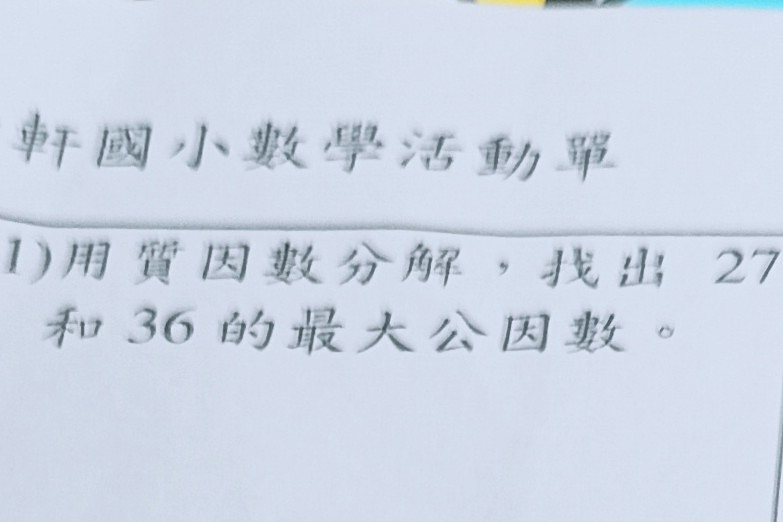 軒國小數學活動單
1)用質因數分解，找出 27
和 36 的最大公因數。